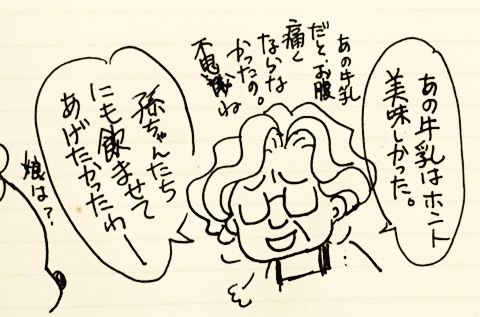 あの牛乳はホント
美味しかった。
あの牛乳
だと、お腹
痛く
ならな
かったの。
不思議ね
孫ちゃんたち
にも飲ませて
あげたかったわー
娘は?